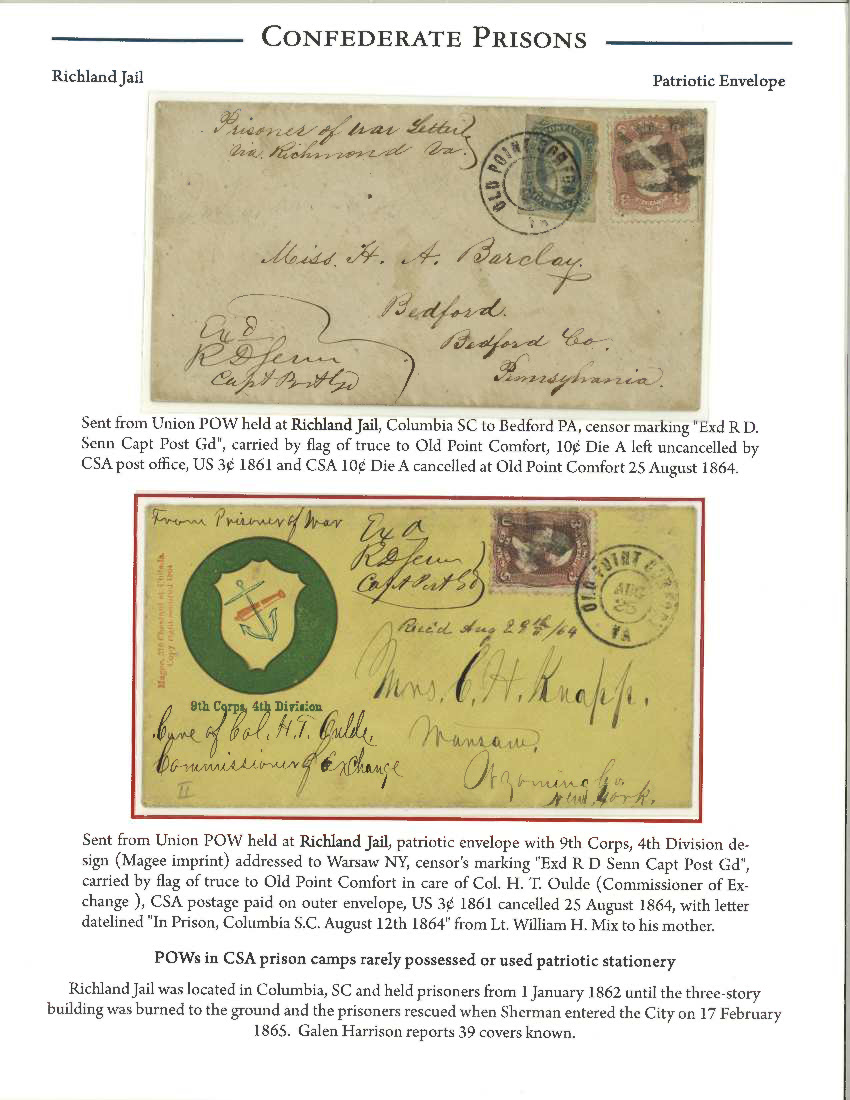 CONFEDERATE PRISONS
Richland Jail
Patriotic Envelope
Prisoner of War Letter
via. Richmond Va.
OLD POINT COMFORT
VA
Miss. H. A. Barclay.
Bedford.
Bedford Co.
Pennsylvania.
Exd
R D Senn
Capt Post Gd
Sent from Union POW held at Richland Jail, Columbia SC to Bedford PA, censor marking "Exd R D.
Senn Capt Post Gd", carried by flag of truce to Old Point Comfort, 10¢ Die A left uncancelled by
CSA post office, US 3¢ 1861 and CSA 10¢ Die A cancelled at Old Point Comfort 25 August 1864.
From Prisoner of War
Exd
R D Senn
Capt Post Gd
OLD POINT COMFORT
AUG
25
VA
Magee, 316 Chestnut st Philada.
Copy right secured 1864
Rec'd Aug 29th/64
9th Corps, 4th Division
Mrs. C. H. Knapp.
Care of Col. H.T. Oulde.
Warsaw.
Commissioner of Exchange
Wyoming Co.
New York.
II
Sent from Union POW held at Richland Jail, patriotic envelope with 9th Corps, 4th Division de-
sign (Magee imprint) addressed to Warsaw NY, censor's marking "Exd R D Senn Capt Post Gd",
carried by flag of truce to Old Point Comfort in care of Col. H. T. Oulde (Commissioner of Ex-
change ), CSA postage paid on outer envelope, US 3¢ 1861 cancelled 25 August 1864, with letter
datelined "In Prison, Columbia S.C. August 12th 1864" from Lt. William H. Mix to his mother.
POWs in CSA prison camps rarely possessed or used patriotic stationery
Richland Jail was located in Columbia, SC and held prisoners from 1 January 1862 until the three-story
building was burned to the ground and the prisoners rescued when Sherman entered the City on 17 February
1865. Galen Harrison reports 39 covers known.